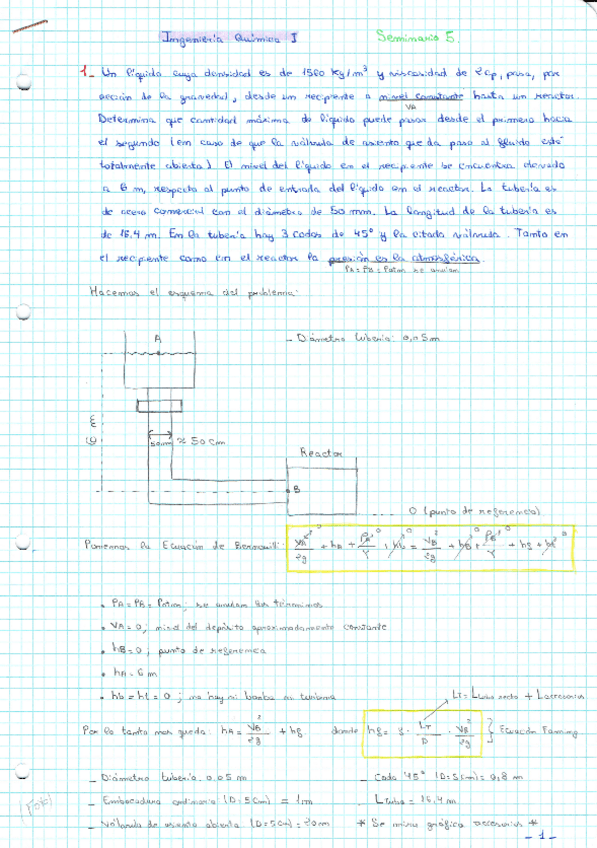 Ingeniería Química I Seminario 5.
1_ Un líquido cuya densidad es de 1560 kg/m³ y viscosidad de 2 cp, pasa, por
acción de la gravedad, desde un recipiente a nivel constante hasta un reactor.
VA
Determina que cantidad máxima de líquido puede pasar desde el primero hacia
el segundo (en caso de que la válvula de asiento que da paso al fluido esté
totalmente abierta). El nivel del líquido en el recipiente se encuentra elevado
a 6 m, respecto al punto de entrada del líquido en el reactor. La tubería es
de acero comercial con el diámetro de 50 mm. La longitud de la tubería es
de 16,4 m. En la tubería hay 3 codos de 45° y la citada válvula. Tanto en
el recipiente como en el reactor la presión es la atmosférica.
PA = PB = Patm se anulan
Hacemos el esquema del problema:
A
_ Diámetro tubería: 0,05m
6 m
50mm ≈ 50 cm
Reactor
B
0 (punto de referencia)
Ponemos la Ecuación de Bernouilli: VA²/2g + hA + PA/γ + hb = VB²/2g + hB + PB/γ + hf + ht
• PA = PB = Patm; se anulan los términos
• VA = 0; nivel del depósito aproximadamente constante
• hB = 0; punto de referencia
• hA = 6 m
• hb = ht = 0; no hay ni bomba ni turbina
LT = Ltubo recto + Laccesorios
Por lo tanto nos queda: hA = VB²/2g + hf donde hf = f · LT/D · VB²/2g } Ecuación Fanning
_ Diámetro tubería: 0.05 m _ Codo 45° (D=5cm) = 0,8 m
_ Embocadura ordinaria (D=5cm) = 1m _ Ltubo = 16,4 m
_ Válvula de asiento abierta (D=5cm) = 20m * Se mira gráfica accesorios *
-1-